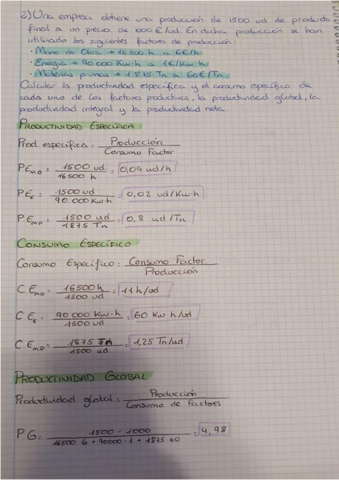 2) Una empresa obtiene una producción de 1500 ud de producto
final a un precio de 1000 €/ud. En dicha producción se han
utilizado los siguientes factores de producción:
· Mano de Obra → 16500 h a 6€/h
· Energía → 90000 Kw·h a 1€/Kw·h
· Materias primas → 1875 Tn a 60€/Tn
Calcular la productividad específica y el consumo específico de
cada uno de los factores productivos, la productividad global, la
productividad integral y la productividad neta.
PRODUCTIVIDAD ESPECÍFICA
Prod. específica = Producción / Consumo Factor
PE M.O = 1500 ud / 16500 h = 0,09 ud/h
PE E = 1500 ud / 90.000 Kw·h = 0,02 ud/Kw·h
PE M.P = 1500 ud / 1875 Tn = 0,8 ud/Tn
CONSUMO ESPECÍFICO
Consumo Específico = Consumo Factor / Producción
CE M.O = 16500 h / 1500 ud = 11 h/ud
CE E = 90000 Kw·h / 1500 ud = 60 Kw·h/ud
CE M.P = 1875 Tn / 1500 ud = 1,25 Tn/ud
PRODUCTIVIDAD GLOBAL
Productividad global = Producción / Consumo de Factores
PG = 1500 · 1000 / 16500·6 + 90000·1 + 1875·60 = 4,98